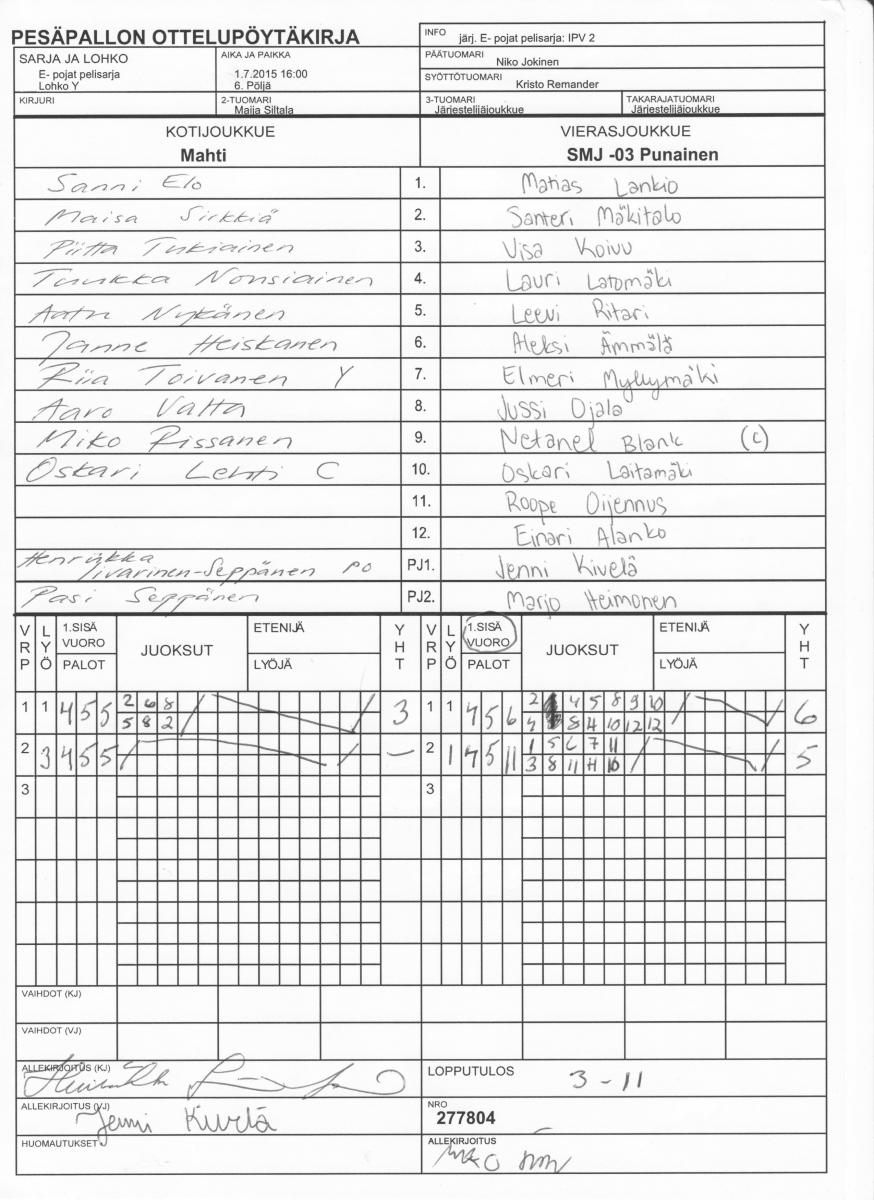 PESÄPALLON OTTELUPÖYTÄKIRJA
INFO järj. E- pojat pelisarja: IPV 2
PÄÄTUOMARI Niko Jokinen
SYÖTTÖTUOMARI Kristo Remander
SARJA JA LOHKO
E- pojat pelisarja
Lohko Y
AIKA JA PAIKKA
1.7.2015 16:00
6. Pöljä
KIRJURI
2-TUOMARI
Maija Siltala
3-TUOMARI
Järjestelijäjoukkue
TAKARAJATUOMARI
Järjestelijäjoukkue
KOTIJOUKKUE VIERASJOUKKUE
Mahti SMJ -03 Punainen
Sanni Elo 1. Matias Lankio
Maisa Sirkkiä 2. Santeri Mäkitalo
Piitta Tukiainen 3. Visa Koivu
Tuukka Nousiainen 4. Lauri Latomäki
Aatu Nykänen 5. Leevi Ritari
Janne Heiskanen 6. Aleksi Ämmälä
Riia Toivanen Y 7. Elmeri Myllymäki
Aaro Valta 8. Jussi Ojala
Miko Rissanen 9. Netanel Blank (c)
Oskari Lehti C 10. Oskari Laitamäki
11. Roope Oijennus
12. Einari Alanko
Henriikka Iivarinen-Seppänen PO PJ1. Jenni Kivelä
Pasi Seppänen PJ2. Marjo Heimonen
VRP LYÖ 1.SISÄ VUORO PALOT JUOKSUT ETENIJÄ LYÖJÄ YHT VRP LYÖ 1.SISÄ VUORO PALOT JUOKSUT ETENIJÄ LYÖJÄ YHT
1 1 4 5 5 2 6 8 3 1 1 4 5 6 2 4 5 8 9 10 6
5 8 2 8 4 10 12 12
2 3 4 5 5 – 2 1 4 5 11 1 5 6 7 11 5
3 8 11 4 10
3 3
VAIHDOT (KJ)
VAIHDOT (VJ)
ALLEKIRJOITUS (KJ)
LOPPUTULOS 3 - 11
ALLEKIRJOITUS (VJ) Jenni Kivelä
NRO
277804
HUOMAUTUKSET
ALLEKIRJOITUS